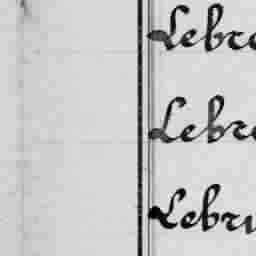 Lebre
Lebre
Lebru